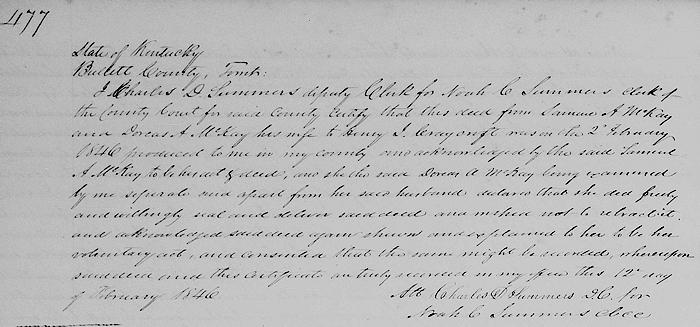 477
State of Kentucky
Bullett County, Towit:
I Charles D Summers deputy Clerk for Noah C Summers clerk of
the County Court for said County certify that this deed from Samuel A McKay
and Dorcas A McKay his wife to Henry J. Craycroft was on the 2d February
1846 produced to me in my county and acknowledged by the said Samuel
A McKay to be his act & deed, and she the said Dorcas A McKay being examined
by me separate and apart from her said husband declared that she did freely
and willingly seal and deliver said deed and wished not to retract it
and acknowledged said deed again shewn and explained to her to be her
voluntary act, and consented that the same might be recorded, whereupon
said deed and this certificate are truly recorded in my office this 12th day
of February 1846
Att Charles D Summers D.C. for
Noah C Summers clcc